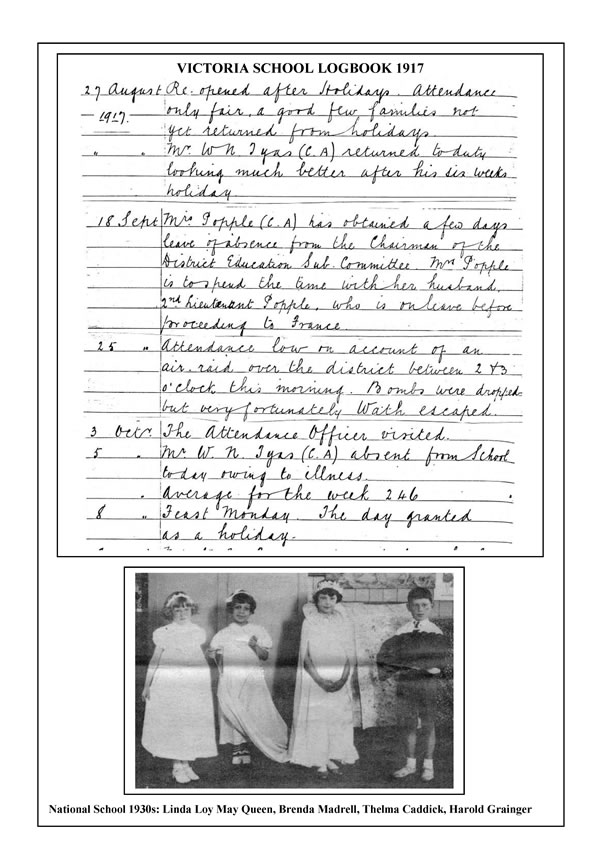 VICTORIA SCHOOL LOGBOOK 1917
27 August Re-opened after Holidays. Attendance
1917. only fair, a good few families not
yet returned from holidays.
" " Mr. W N. Tyas (C.A) returned to duty
looking much better after his six weeks
holiday
18 Sept Mrs Popple (C.A) has obtained a few days
leave of absence from the Chairman of the
District Education Sub-Committee. Mrs Popple
is to spend the time with her husband,
2nd Lieutenant Popple, who is on leave before
proceeding to France
25 " Attendance low on account of an
air-raid over the district between 2 & 3
o'clock this morning. Bombs were dropped
but very fortunately Wath escaped.
3 Octr. The Attendance Officer visited.
5 " Mr. W. N. Tyas (C.A) absent from School
today owing to illness.
" Average for the week 246
8 " Feast Monday. The day granted
as a holiday.
National School 1930s: Linda Loy May Queen, Brenda Madrell, Thelma Caddick, Harold Grainger